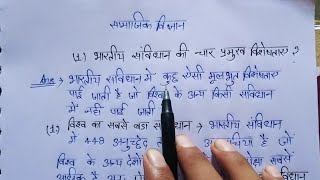 सामाजिक विज्ञान
(1) भारतीय संविधान की चार प्रमुख विशेषताएं ?
Ans → भारतीय संविधान में कुछ ऐसी मूलभूत विशेषताएं
पाई जाती है जो विश्व के अन्य किसी संविधान
में नहीं पाई जाती
(1) विश्व का सबसे बड़ा संविधान → भारतीय संविधान
में 448 अनुच्छेद जो
विश्व के अन्य देशों सबसे